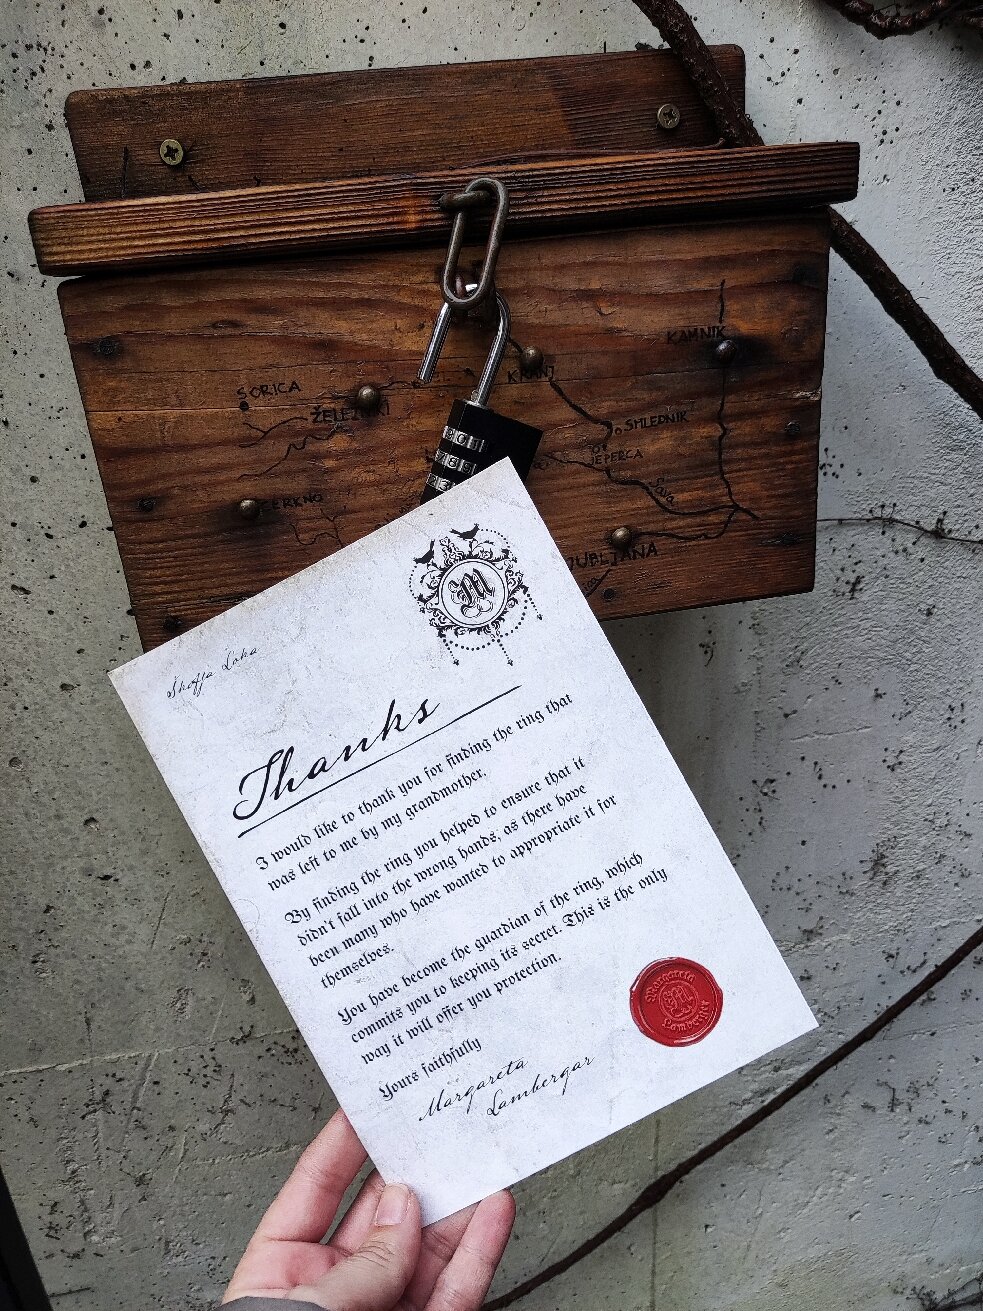 KAMNIK
SORICA
KRANJ
ŽELEZNIKI
SMLEDNIK
JEPERCA
SAVA
LJUBLJANA
M
Škofja Loka
Thanks
I would like to thank you for finding the ring that
was left to me by my grandmother.
By finding the ring you helped to ensure that it
didn't fall into the wrong hands, as there have
been many who have wanted to appropriate it for
themselves.
You have become the guardian of the ring, which
commits you to keeping its secret. This is the only
way it will offer you protection.
Yours faithfully
Margareta
Lambergar
Margareta
M
Lambergar